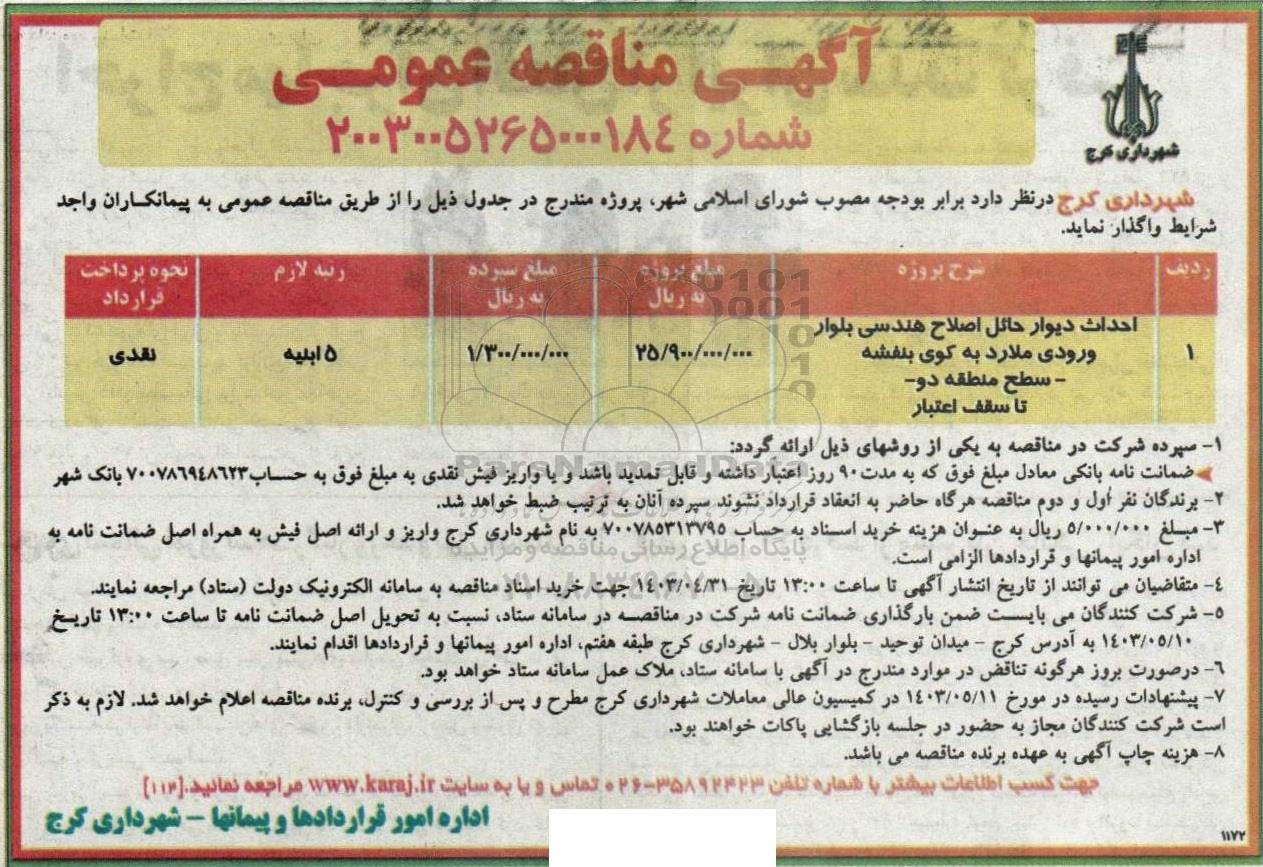 آگهی مناقصه عمومی
شماره ۲۰۰۳۰۰۵۲۶۵۰۰۰۱۸۴
شهرداری کرج
شهرداری کرج درنظر دارد برابر بودجه مصوب شورای اسلامی شهر، پروژه مندرج در جدول ذیل را از طریق مناقصه عمومی به پیمانکاران واجد
شرایط واگذار نماید.
ردیف شرح پروژه مبلغ پروژه به ریال مبلغ سپرده به ریال رتبه لازم نحوه پرداخت قرارداد
۱ احداث دیوار حائل اصلاح هندسی بلوار ۲۵/۹۰۰/۰۰۰/۰۰۰ ۱/۳۰۰/۰۰۰/۰۰۰ ۵ ابنیه نقدی
ورودی ملارد به کوی بنفشه
- سطح منطقه دو-
تا سقف اعتبار
۱- سپرده شرکت در مناقصه به یکی از روشهای ذیل ارائه گردد:
ضمانت نامه بانکی معادل مبلغ فوق که به مدت ۹۰ روز اعتبار داشته و قابل تمدید باشد و یا واریز فیش نقدی به مبلغ فوق به حساب ۷۰۰۷۸۶۹۴۸۶۲۳ بانک شهر
۲- برندگان نفر اول و دوم مناقصه هرگاه حاضر به انعقاد قرارداد نشوند سپرده آنان به ترتیب ضبط خواهد شد.
۳- مبلغ ۵/۰۰۰/۰۰۰ ریال به عنوان هزینه خرید اسناد به حساب ۷۰۰۷۸۵۳۱۳۷۹۵ به نام شهرداری کرج واریز و ارائه اصل فیش به همراه اصل ضمانت نامه به
اداره امور پیمانها و قراردادها الزامی است.
۴- متقاضیان می توانند از تاریخ انتشار آگهی تا ساعت ۱۳:۰۰ تاریخ ۱۴۰۳/۰۴/۳۱ جهت خرید اسناد مناقصه به سامانه الکترونیک دولت (ستاد) مراجعه نمایند.
۵- شرکت کنندگان می بایست ضمن بارگذاری ضمانت نامه شرکت در مناقصه در سامانه ستاد، نسبت به تحویل اصل ضمانت نامه تا ساعت ۱۳:۰۰ تاریخ
۱۴۰۳/۰۵/۱۰ به آدرس کرج - میدان توحید - بلوار بلال - شهرداری کرج طبقه هفتم، اداره امور پیمانها و قراردادها اقدام نمایند.
۶- درصورت بروز هرگونه تناقض در موارد مندرج در آگهی با سامانه ستاد، ملاک عمل سامانه ستاد خواهد بود.
۷- پیشنهادات رسیده در مورخ ۱۴۰۳/۰۵/۱۱ در کمیسیون عالی معاملات شهرداری کرج مطرح و پس از بررسی و کنترل، برنده مناقصه اعلام خواهد شد. لازم به ذکر
است شرکت کنندگان مجاز به حضور در جلسه بازگشایی پاکات خواهند بود.
۸- هزینه چاپ آگهی به عهده برنده مناقصه می باشد.
جهت کسب اطلاعات بیشتر با شماره تلفن ۳۵۸۹۲۴۲۳-۰۲۶ تماس و یا به سایت www.karaj.ir مراجعه نمائید.[۱۱۳]
اداره امور قراردادها و پیمانها - شهرداری کرج
۱۱۷۲
ParsNamadData
پایگاه اطلاع رسانی مناقصه و مزایده